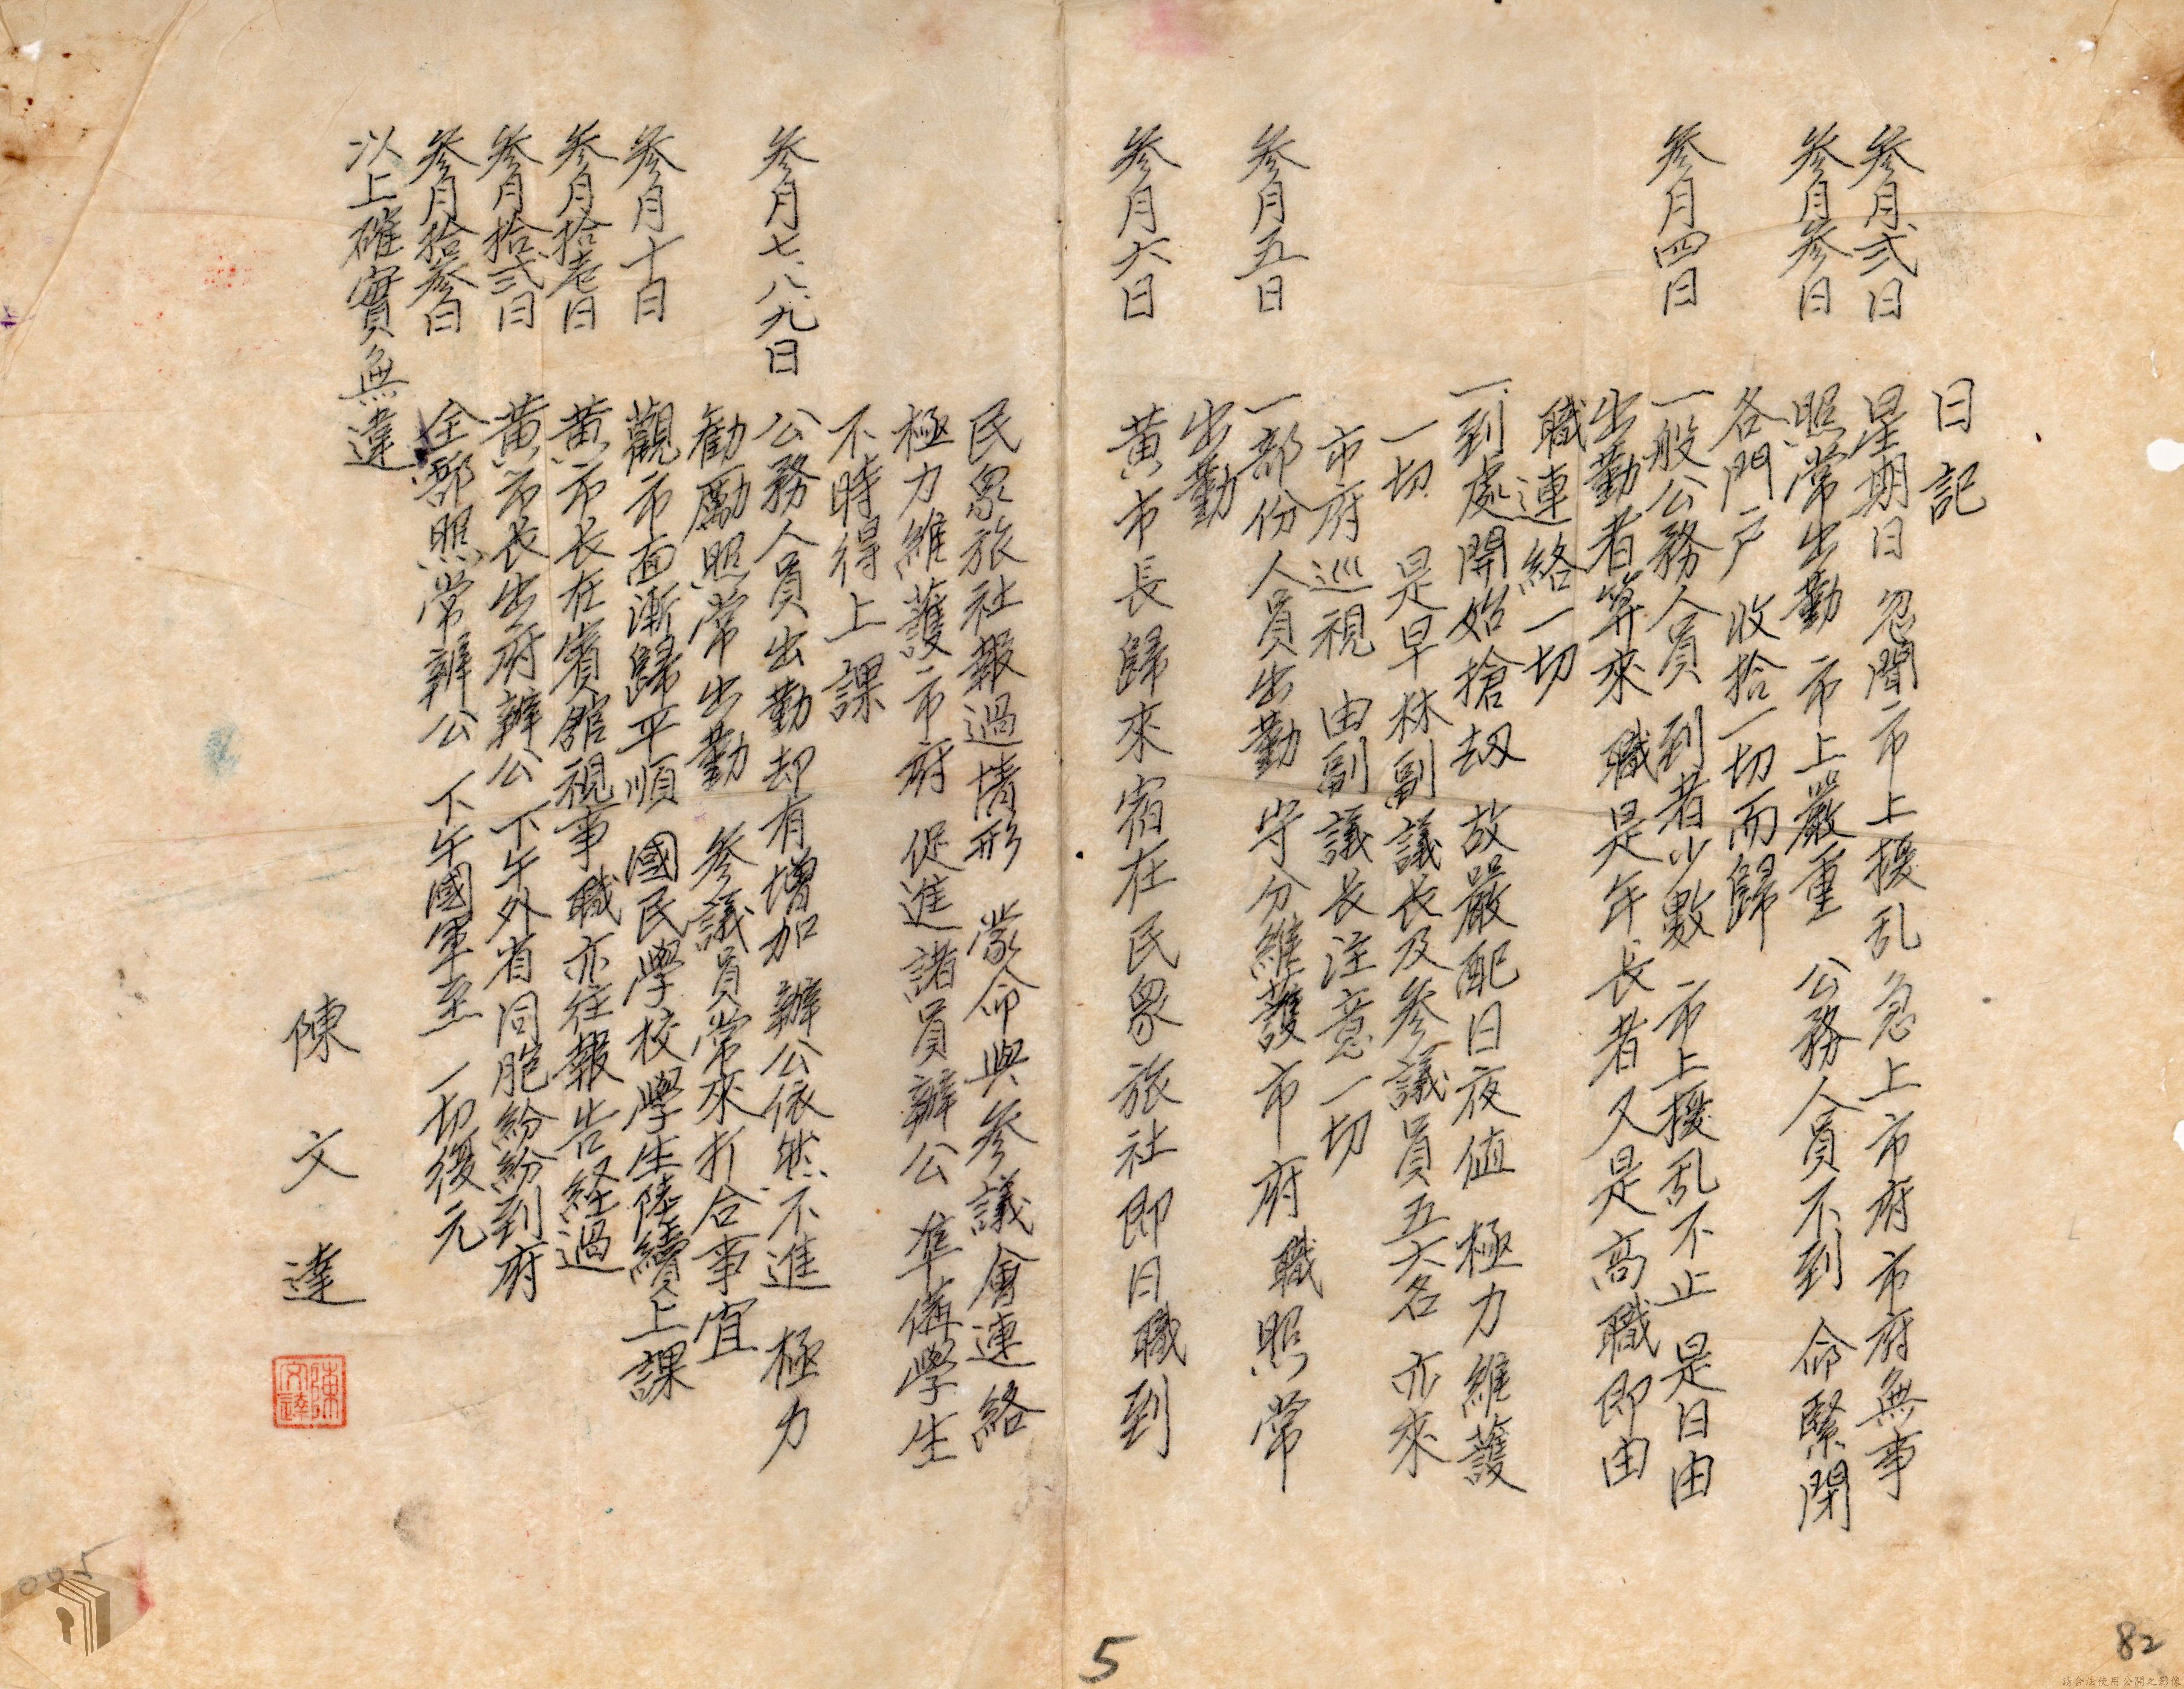 日記
參月弍日 星期日忽聞市上擾乱急上市府市府無事
參月參日 照常出勤 市上嚴重 公務人員不到 命緊閉
各門户 收拾一切而歸
參月四日 一般公務人員 到者少數 市上擾乱不止 是日由
出勤者算來 職是年長者又是高職即由
職連絡一切
一到處開始搶刼 故嚴配日夜值 極力維護
一切 是早林副議長及參議員五六名 亦來
市府巡視 由副議長注意一切
參月五日 一部份人員出勤 守分維護市府 職照常
出勤
參月六日 黄市長歸來宿在民眾旅社即日職到
民眾旅社報過情形 蒙命與參議會連絡
極力維護市府 促進諸員辦公 準備學生
不時得上課
參月七、八、九日 公務人員出勤却有增加 辦公依然不進 極力
勸勵照常出勤 參議員常來打合事宜
參月十日 觀市面漸歸平順 國民學校學生陸續上課
參月拾壱日 黄市長在賓舘視事職亦往報告経過
參月拾弍日 黄市長出府辦公 下午外省同胞紛紛到府
參月拾參日 全部照常辦公 下午國軍至 一切復元
以上確實無違
陳文達
陳文達
5
82
005
請合法使用公開之影像